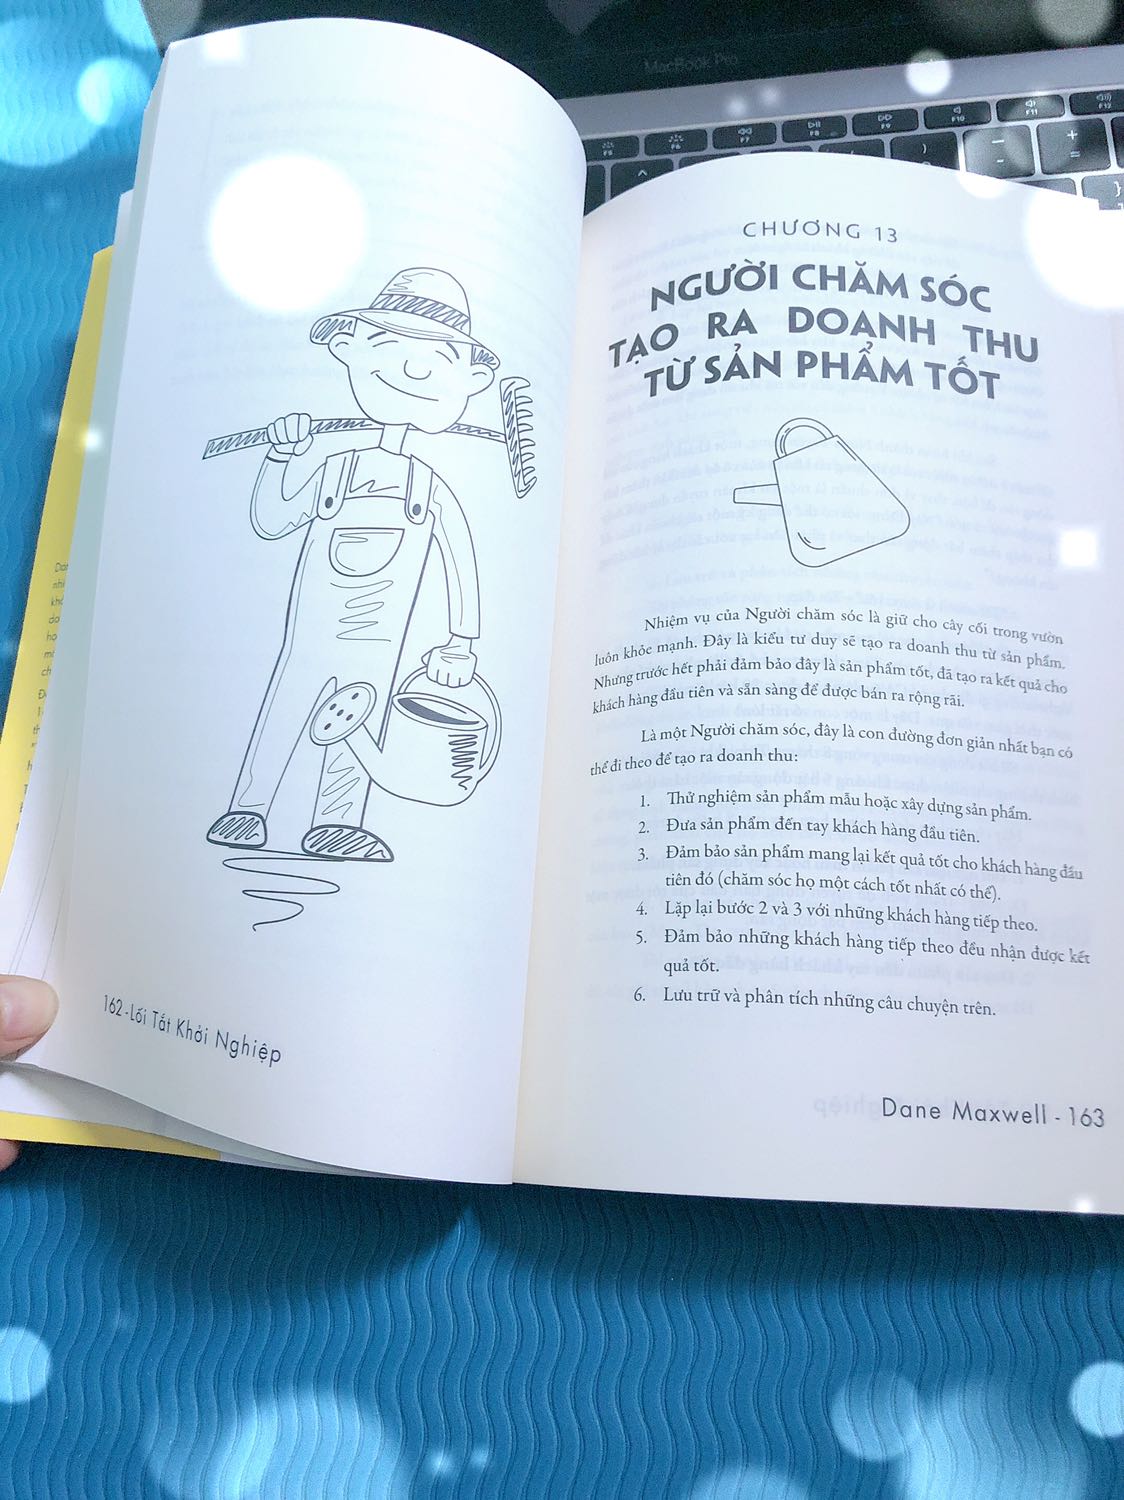 MacBook Pro
F5
F6
F7
F8
F9
F10
F11
F12
162 - Lối Tắt Khởi Nghiệp
CHƯƠNG 13
NGƯỜI CHĂM SÓC
TẠO RA DOANH THU
TỪ SẢN PHẨM TỐT
Nhiệm vụ của Người chăm sóc là giữ cho cây cối trong vườn
luôn khỏe mạnh. Đây là kiểu tư duy sẽ tạo ra doanh thu từ sản phẩm.
Nhưng trước hết phải đảm bảo đây là sản phẩm tốt, đã tạo ra kết quả cho
khách hàng đầu tiên và sẵn sàng để được bán ra rộng rãi.
Là một Người chăm sóc, đây là con đường đơn giản nhất bạn có
thể đi theo để tạo ra doanh thu:
1. Thử nghiệm sản phẩm mẫu hoặc xây dựng sản phẩm.
2. Đưa sản phẩm đến tay khách hàng đầu tiên.
3. Đảm bảo sản phẩm mang lại kết quả tốt cho khách hàng đầu
tiên đó (chăm sóc họ một cách tốt nhất có thể).
4. Lặp lại bước 2 và 3 với những khách hàng tiếp theo.
5. Đảm bảo những khách hàng tiếp theo đều nhận được kết
quả tốt.
6. Lưu trữ và phân tích những câu chuyện trên.
Dane Maxwell - 163